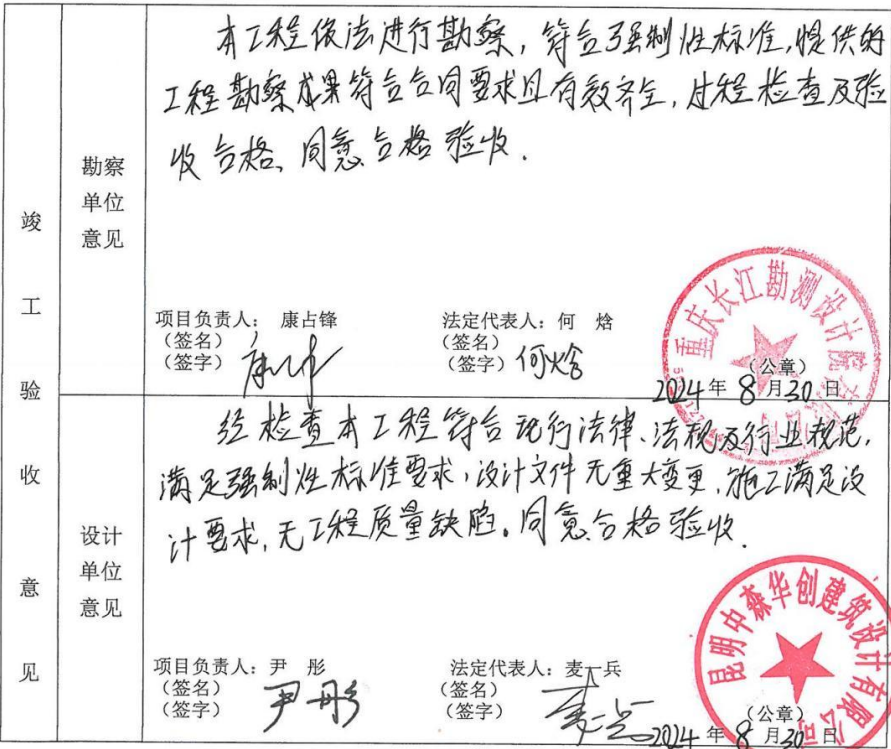 竣工验收意见
勘察单位意见
本工程依法进行勘察，符合强制性标准，提供的
工程勘察成果符合合同要求且有效齐全，过程检查及验
收合格、同意合格验收.
项目负责人： 康占锋
（签名）
（签字）
法定代表人：何 焓
（签名）
（签字）何焓
重庆长江勘测设计院有限公司
（公章）
2024年8月30日
设计单位意见
经检查本工程符合现行法律、法规及行业规范，
满足强制性标准要求，设计文件无重大变更，施工满足设
计要求，无工程质量缺陷。同意合格验收.
项目负责人：尹 彤
（签名）
（签字）尹彤
法定代表人：麦一兵
（签名）
（签字）
昆明中森华创建筑设计有限公司
（公章）
2024年8月30日